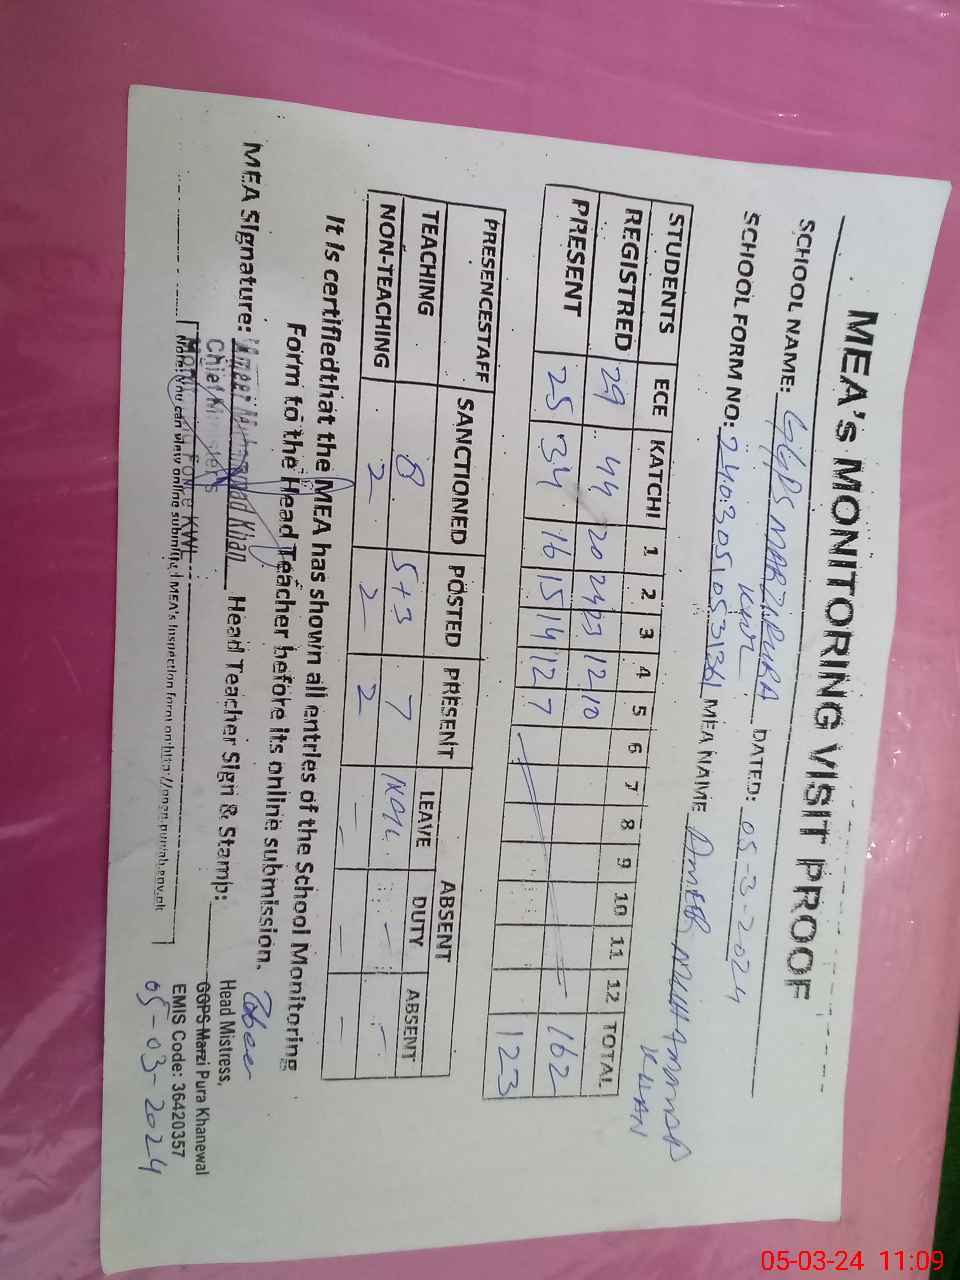 MEA's MONITORING VISIT PROOF
SCHOOL NAME: GGPS MARZIPURA KWL DATED: 05-3-2024
SCHOOL FORM NO: MEA NAME AMEER MUHAMMAD KHAN
STUDENTS ECE KATCHI 1 2 3 4 5 6 7 8 9 10 11 12 TOTAL
REGISTRED 29 44 20 24 23 12 10 162
PRESENT 25 34 16 15 14 12 7 123
PRESENCESTAFF SANCTIONED POSTED PRESENT ABSENT
LEAVE DUTY ABSENT
TEACHING 8 5+3 7 - -
NON-TEACHING 2 2 2 - - -
It is certifiedthat the MEA has shown all entries of the School Monitoring
Form to the Head Teacher before its online submission.
MEA Signature: Ameer Muhammad Khan Head Teacher Sign & Stamp:
Chief Minister's
Monitoring Force KWL
Head Mistress,
GGPS Marzi Pura Khanewal
EMIS Code: 36420357
05-03-2024
Note: You can view online submitted MEA's Inspection form on
05-03-24 11:09